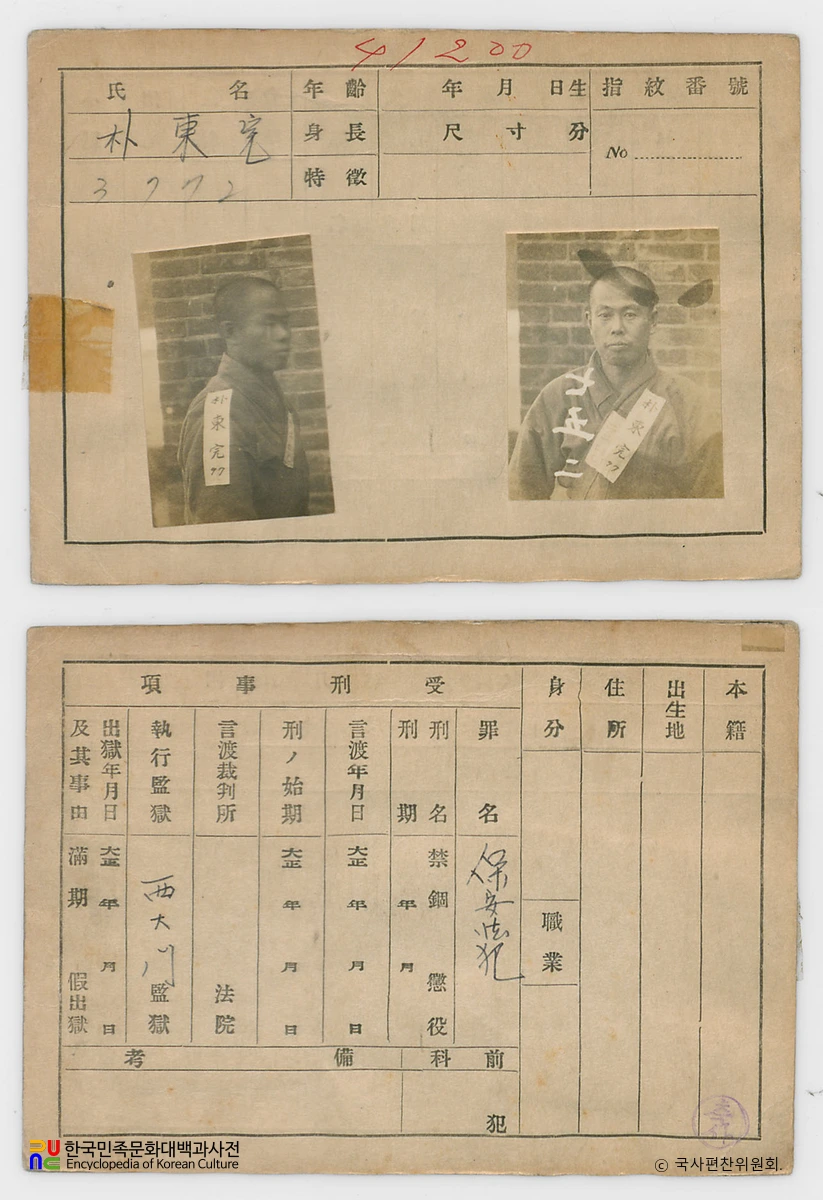 41200
氏名
年齡
年 月 日生
指紋番號
朴東完
身長
尺 寸 分
No
特徵
3772
朴東完
77
朴東完
77
七五二
本籍
出生地
住所
身分
職業
受刑事項
罪名
保安法犯
刑名
禁錮 懲役
刑期
年 月
言渡年月日
大正 年 月 日
刑ノ始期
大正 年 月 日
言渡裁判所
法院
執行監獄
西大門監獄
出獄年月日
及其事由
大正 年 月 日
滿期 假出獄
前科
犯
備考
한국민족문화대백과사전
Encyclopedia of Korean Culture
© 국사편찬위원회.